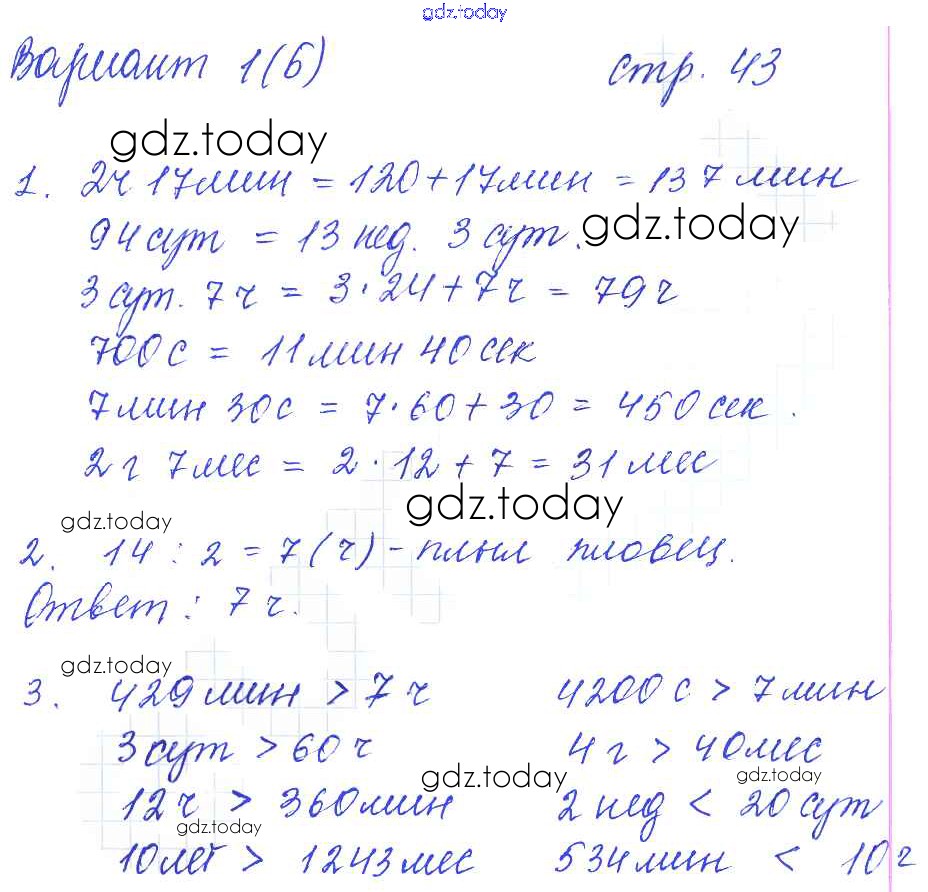 gdz.today
Вариант 1(б) стр. 43
gdz.today
1. 2ч 17мин = 120+17мин = 137мин
94сут = 13нед. 3сут. gdz.today
3сут. 7ч = 3·24+7ч = 79ч
700с = 11мин 40сек
7мин 30с = 7·60+30 = 450сек.
2г 7мес = 2·12+7 = 31мес
gdz.today gdz.today
2. 14 : 2 = 7(ч) - плыл пловец.
Ответ: 7ч.
gdz.today
3. 429мин > 7ч 4200с > 7мин
3сут > 60ч 4г > 40мес
gdz.today gdz.today
12ч > 360мин 2нед < 20сут
gdz.today
10лет > 1243мес 534мин < 10ч